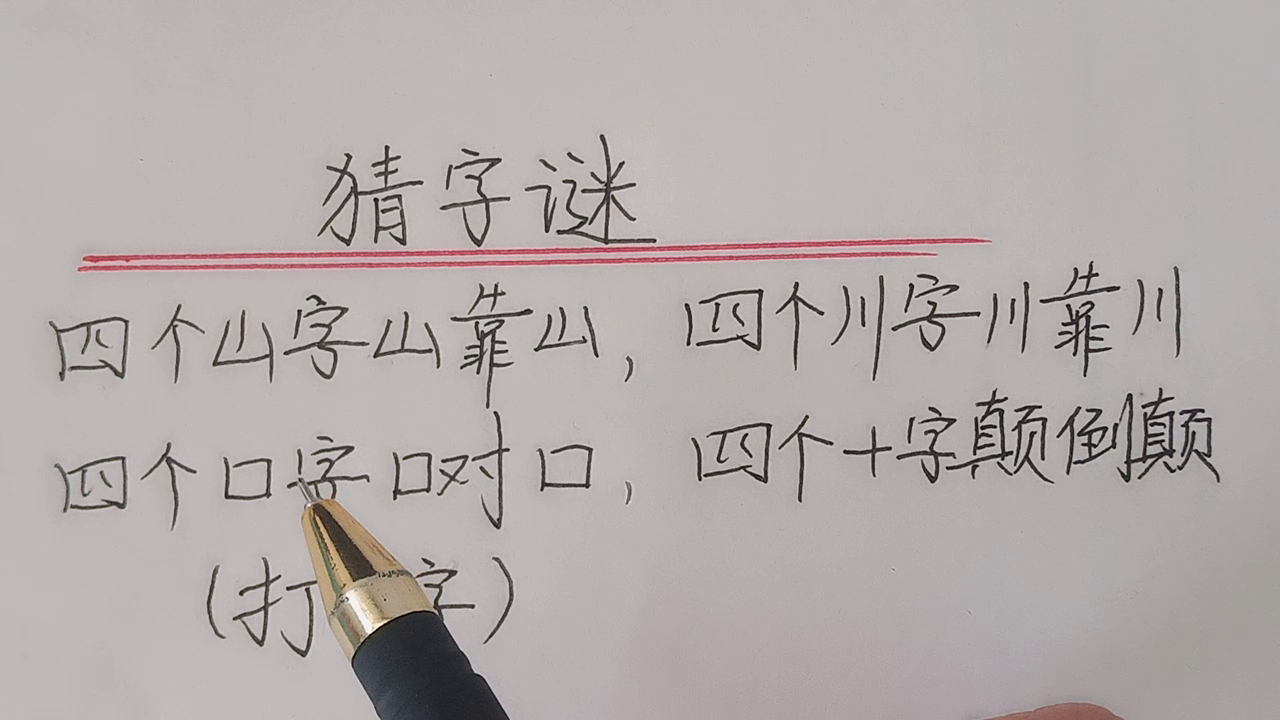 猜字谜
四个山字山靠山，四个川字川靠川
四个口字口对口，四个十字颠倒颠
（打字）